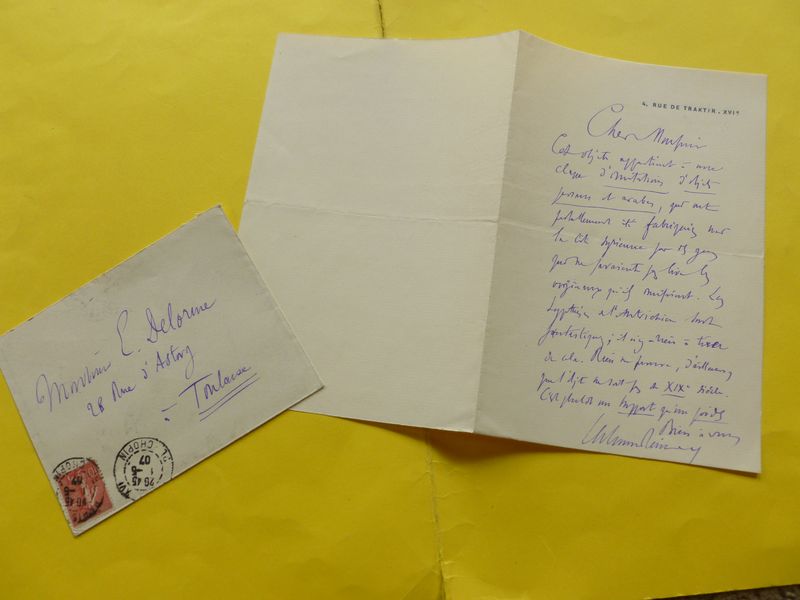 4, RUE DE TRAKTIR. XVIe
Cher Monsieur
Cet objet appartient à une
classe d'imitations d'objets
persans et arabes, qui ont
été fabriqués sur
la côte syrienne par des gens
qui ne savaient pas lire les
originaux qu'ils imitaient. Les
hypothèses de l'Autrichien sont
fantastiques; il n'y a rien à tirer
de cela. Rien ne prouve, d'ailleurs,
que l'objet ne soit pas du XIXe siècle.
C'est plutôt un support qu'un poids
Bien à vous
Monsieur E. Delorme
28 Rue d'Astorg
à Toulouse
PL. CHOPIN
20 45
1 - 6
07
XVI